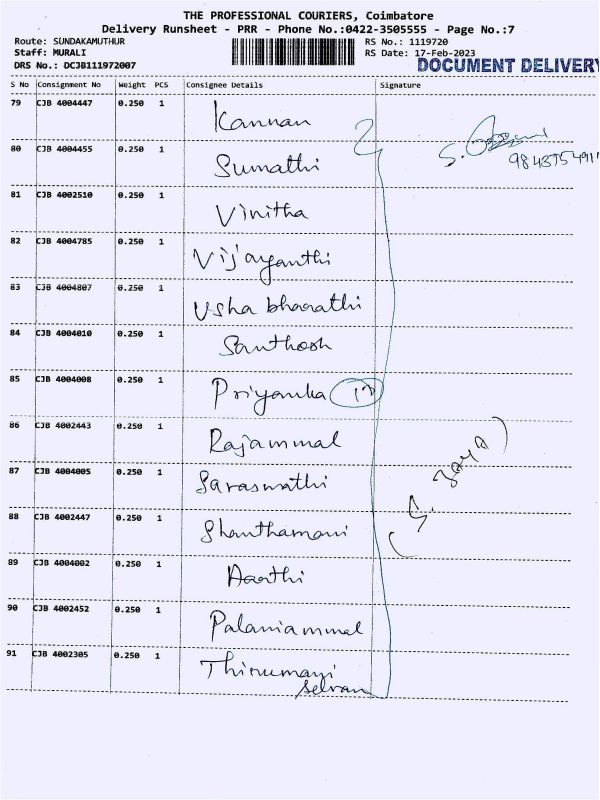 THE PROFESSIONAL COURIERS, Coimbatore
Delivery Runsheet - PRR - Phone No.:0422-3505555 - Page No.:7
Route: SUNDAKAMUTHUR RS No.: 1119720
Staff: MURALI RS Date: 17-Feb-2023
DRS No.: DCJB111972007 DOCUMENT DELIVERY
S No Consignment No Weight PCS Consignee Details Signature
79 CJB 4004447 0.250 1 Kannan
80 CJB 4004455 0.250 1 Sumathi
S.
81 CJB 4002510 0.250 1 Vinitha
82 CJB 4004785 0.250 1 Vijayanthi
83 CJB 4004807 0.250 1 Usha bharathi
84 CJB 4004010 0.250 1 Santhosh
85 CJB 4004008 0.250 1 Priyanka
86 CJB 4002443 0.250 1 Rajammal
87 CJB 4004005 0.250 1 Saraswathi
(S. JAYA)
88 CJB 4002447 0.250 1 Shanthamani
89 CJB 4004002 0.250 1 Aarthi
90 CJB 4002452 0.250 1 Palaniammal
91 CJB 4002305 0.250 1 Thirumani
selvan